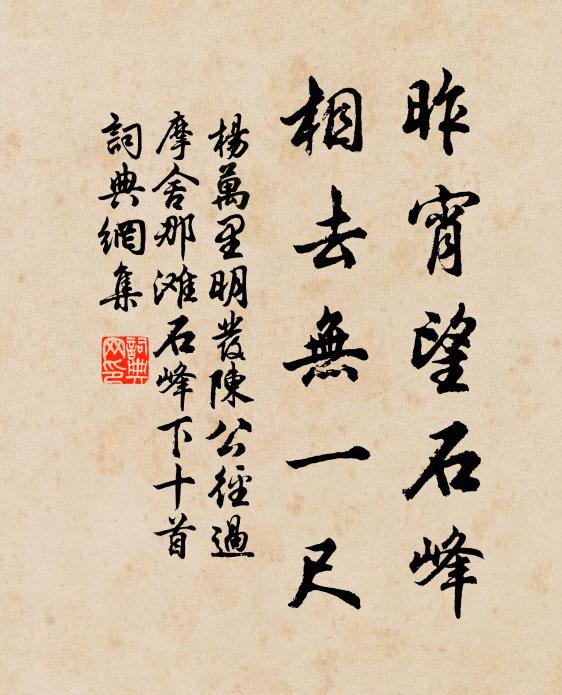 昨宵望石峰
相去無一尺
楊萬里明發陳公徑過
摩舍那滩石峰下十首
詞典網集
詞典网印